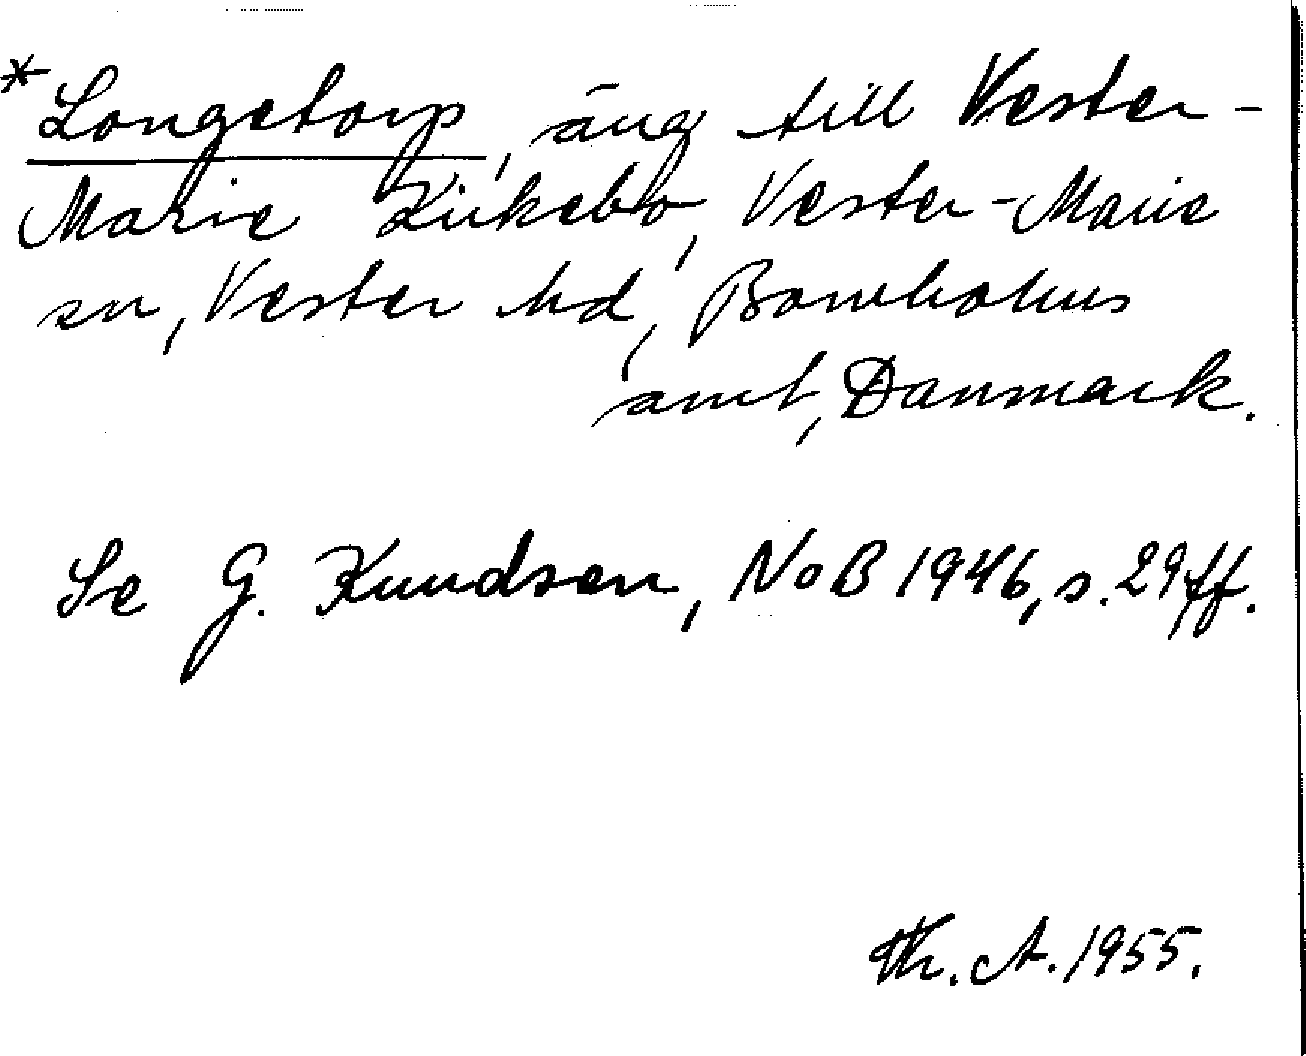 *Longetorp, äng till Vester-
Marie Kirkebo, Vester-Marie
sn, Vester hd, Bornholms
amt, Danmark.
Se G. Knudsen, NoB 1946, s. 29 ff.
Th. A. 1955.